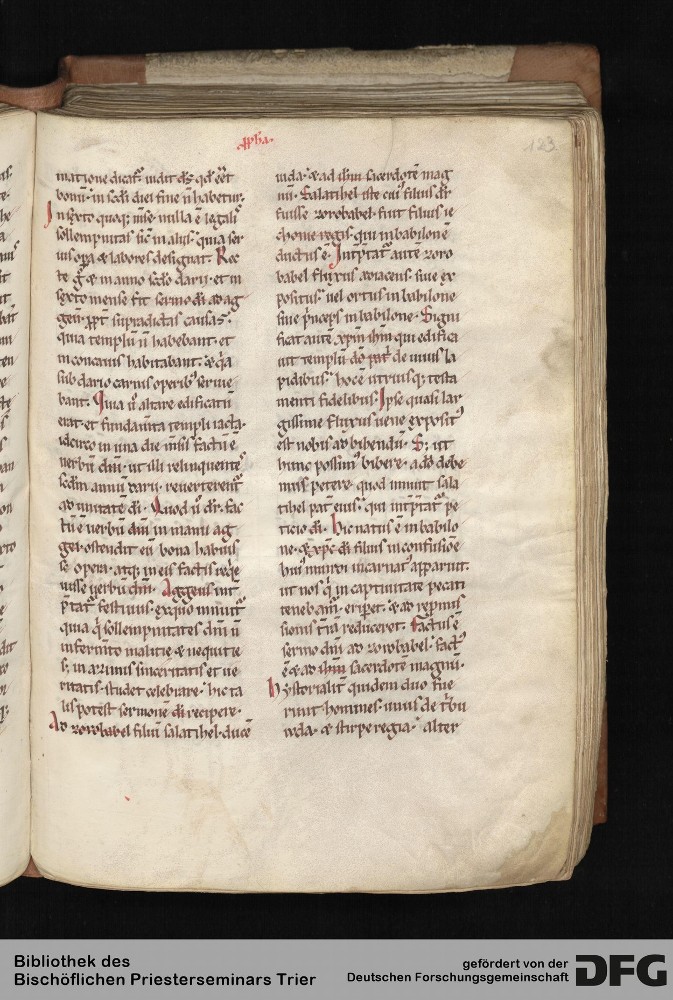 123
matione dicat᷑. uidit d̅s̅ qđ eēt
bonū. in scd̅i diei fine n̄ habetur.
In sexto quoq; m̄se nulla ē legalis
sollempnitas sic̄ in aliis. quia ser
uis opa & labores designat. Rec
te g̊ & in anno scd̅o darii. et in
sexto mense fit sermo dī ad ag
geū. ꝓpt̄ supradictas causas.
quia templū n̄ habebant. et
in concauis habitabant. & q̄a
sub dario carnis operibꝰ serue
bant. Quia ū altare edificatū
erat. et fundam̄ta templi iacta.
idcirco in una die m̄sis factū ē
uerbū dn̄i. ut illi relinquentes
scd̅m annū darii. reuerterent᷑
ad unitatē dī. Quod ū dr̄. fac
tū ē uerbū dn̄i in manu ag
gei. ostendit eū bona habuis
se opera. atq; in eis factis reqͥe
uisse uerbū dn̄i. Aggeus int̄
p̄tat᷑ festiuus. ex quo innuit᷑
quia qͥ sollempnitates dn̄i n̄
in fer̄mto malitię & nequitię
s; in azimis sinceritatis et ue
ritatis. studet celebrare. hic ta
lis potest sermonē dī recipere.
Ad zorobabel filiū salatihel. ducē
iuda. & ad ih̄m sacerdotē mag
nū. Salatihel iste cuiꝰ filius dr̄
fuisse zorobabel. fuit filius ie
chonie regis. qui in babilonē
ductus ē. Int̄p̄tat᷑ autē zoro
babel fluxus adiacens. siue ex
positus. uel ortus in babilone
siue p̄nceps in babilone. Signi
ficat autē xp̄m ih̄m qui edifica
uit templū dō pat̄ de uiuis la
pidibus. hoc ē utriusq; testa
menti fidelibus. Ipse quasi lar
gissime fluxus uene expositꝰ
est nobis ad bibendū. S; ut
hunc possimꝰ bibere. a dō debe
mus petere. quod innuit sala
tihel pat̄ eius. qui int̄p̄tat᷑ pe
ticio dī. hic natus ē in babilo
ne. & xp̄c dī filius in confusiōe
huiꝰ mundi incarnatꝰ apparuit.
ut nos qͥ in captiuitate pecati
tenebam᷑. eriꝑet. & ad repmis
sionis t̄rā reduceret. Factus ē
sermo dn̄i ad zorobabel. factꝰ
ē & ad ih̄m sacerdotē magnū.
hystorialit̄ quidem duo fue
runt homines. unus de tͥbu
iuda. & stirpe regia. alter
Bibliothek des
Bischöflichen Priesterseminars Trier
gefördert von der
Deutschen Forschungsgemeinschaft
DFG